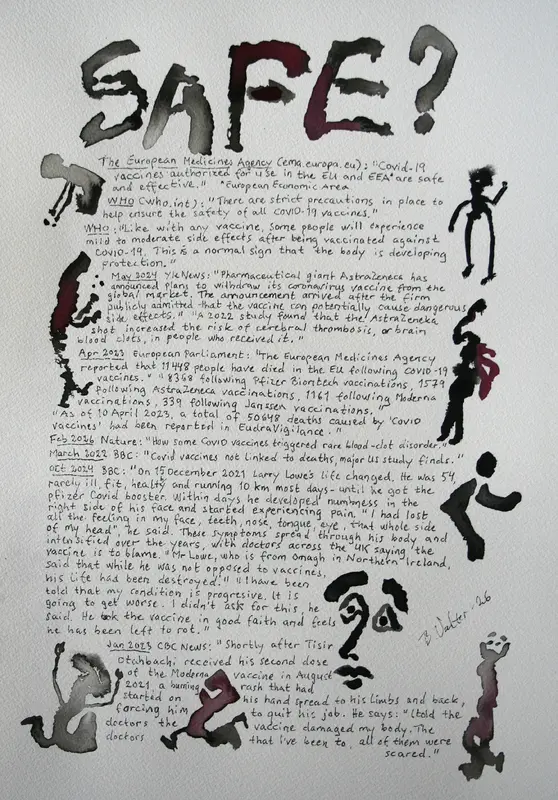 SAFE?
The European Medicines Agency (ema.europa.eu): "Covid-19
vaccines authorized for use in the EU and EEA* are safe
and effective." *European Economic Area
WHO (who.int): "There are strict precautions in place to
help ensure the safety of all COVID-19 vaccines."
WHO: "Like with any vaccine, some people will experience
mild to moderate side effects after being vaccinated against
COVID-19. This is a normal sign that the body is developing
protection."
May 2024 YleNews: "Pharmaceutical giant AstraZeneca has
announced plans to withdraw its coronavirus vaccine from the
global market. The announcement arrived after the firm
publicly admitted that the vaccine can potentially cause dangerous
side effects." "A 2022 study found that the AstraZeneka
shot increased the risk of cerebral thrombosis, or brain
blood clots, in people who received it."
Apr 2023 European Parliament: "The European Medicines Agency
reported that 11448 people have died in the EU following COVID-19
vaccines." "8368 following Pfizer Biontech vaccinations, 1579
following AstraZeneca vaccinations, 1161 following Moderna
vaccinations, 339 following Janssen vaccinations."
"As of 10 April 2023, a total of 50648 deaths caused by 'Covid
vaccines' had been reported in EudraVigilance."
Feb 2026 Nature: "How some Covid vaccines triggered rare blood-clot disorder."
March 2022 BBC: "Covid vaccines not linked to deaths, major US study finds."
Oct 2024 BBC: "On 15 December 2021 Larry Lowe's life changed. He was 54,
rarely ill, fit, healty and running 10 km most days - until he got the
pfizer Covid booster. Within days he developed numbness in the
right side of his face and started experiencing pain." "I had lost
all the feeling in my face, teeth, nose, tongue, eye, that whole side
of my head", he said. These symptoms spread through his body and
intensified over the years, with doctors across the UK saying the
vaccine is to blame. "Mr Lowe, who is from Omagh in Northern-Ireland,
said that while he was not opposed to vaccines,
his life had been destroyed." "I have been
told that my condition is progresive. It is
going to get worse. I didn't ask for this, he
said. He took the vaccine in good faith and feels
he has been left to rot."
B Valter -26
Jan 2023 CBC News: "Shortly after Tisir
Otahbachi received his second dose
of the Moderna vaccine in August
2021 a burning rash that had
started on his hand spread to his limbs and back,
forcing him to quit his job. He says: "I told the
doctors the vaccine damaged my body. The
doctors that I've been to, all of them were
scared."